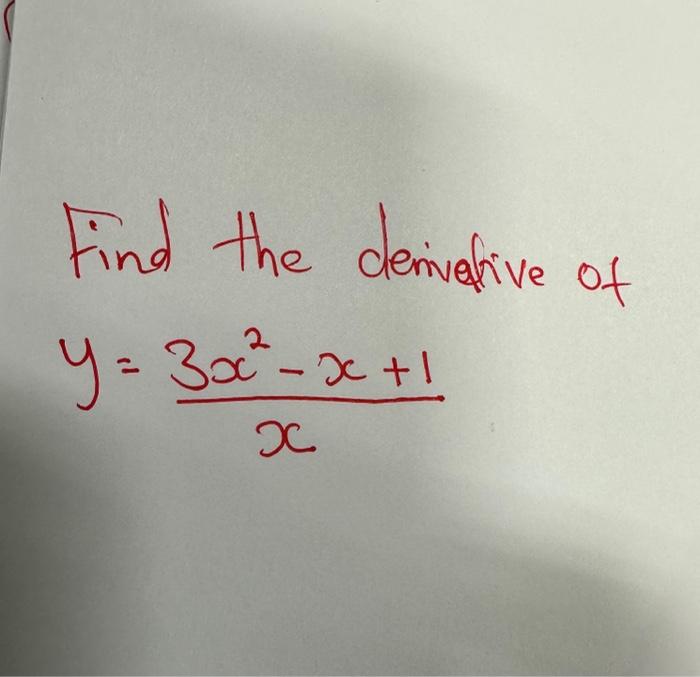 Find the derivative of
y = 3x² - x + 1
x